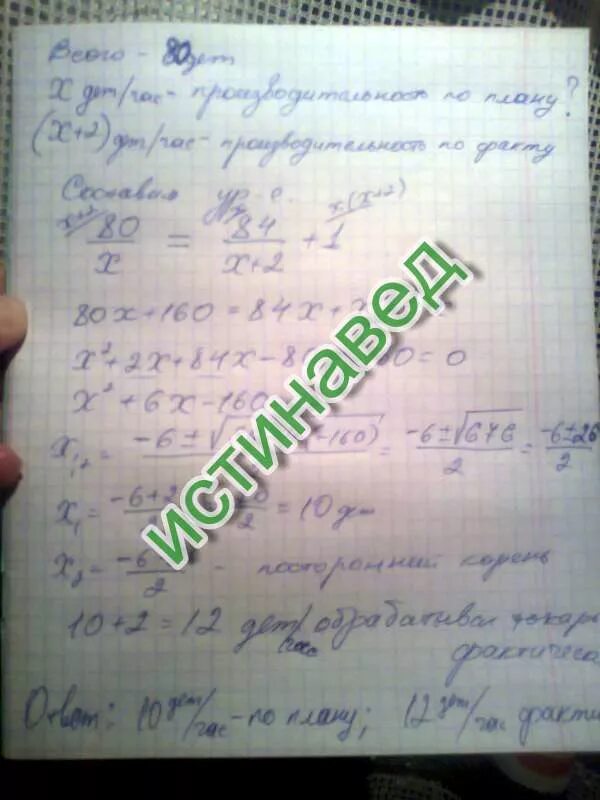 Всего - 80 дет
X дет/час - производительность по плану?
(X+2) дт/час - производительность по факту
Составим ур-е.
x+2 x x(x+2)
80/x = 84/x+2 + 1
80x+160 = 84x+
x²+2x+84x-8 0=0
x²+6x-160
x₁,₂= -6±√ -160)/ = -6±√676/2 = -6±26/2
x₁= -6+2 /2 = 10 дт
x₂= -6 /2 - посторонний корень
10+2=12 дет/час обрабатывал токарь
фактичес
Ответ: 10 дет/час - по плану; 12 дет/час факти
истинавед